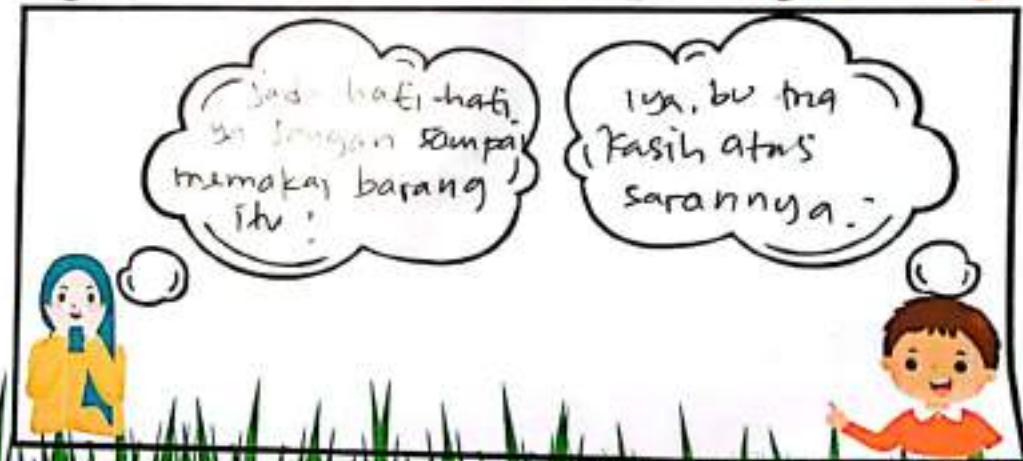 Jadi hati-hati
ya jangan sampai
memakai barang
itu !
Iya, bu tria
kasih atas
sarannya.